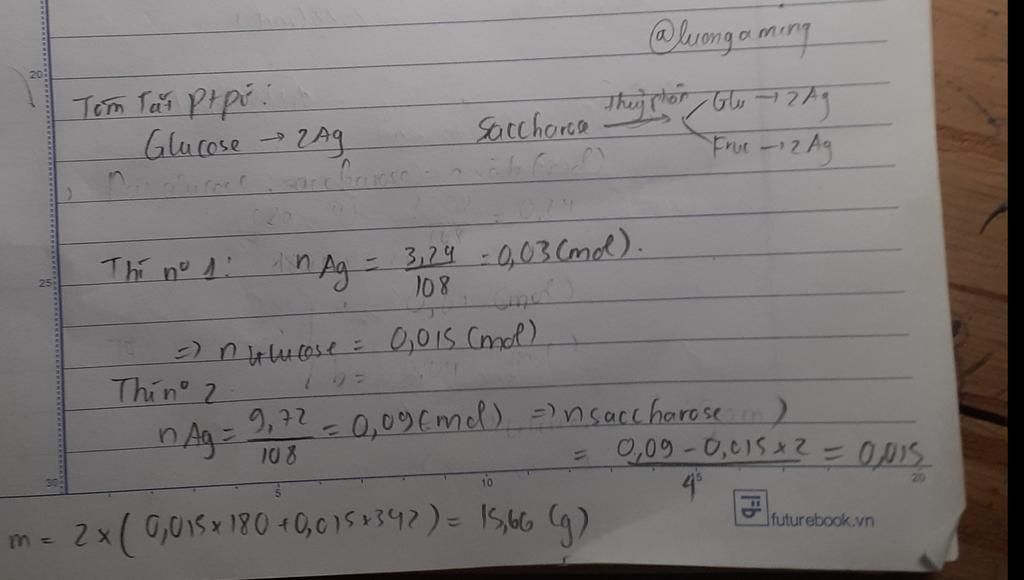 @luongaming
20
Tóm Tắt ptpứ:
Glucose → 2Ag
Saccharca
Thuỷ phân
Glu → 2Ag
Fruc → 2Ag
Thí nº 1: nAg = 3,24/108 = 0,03(mol).
25
=> nGlucose = 0,015 (mol)
Thí nº 2
nAg = 9,72/108 = 0,09(mol) => nsaccharose
= (0,09 - 0,015 x 2)/4 = 0,015
30 5 10 15 20
m = 2 x (0,015 x 180 + 0,015 x 342) = 15,66 (g)
futurebook.vn